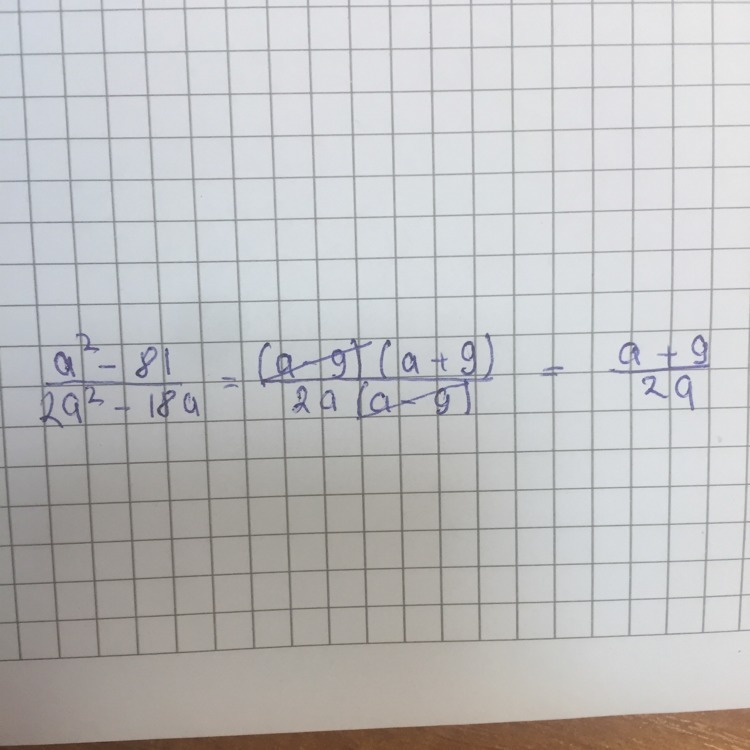 a² - 81 / 2a² - 18a = (a - 9)(a + 9) / 2a(a - 9) = a + 9 / 2a